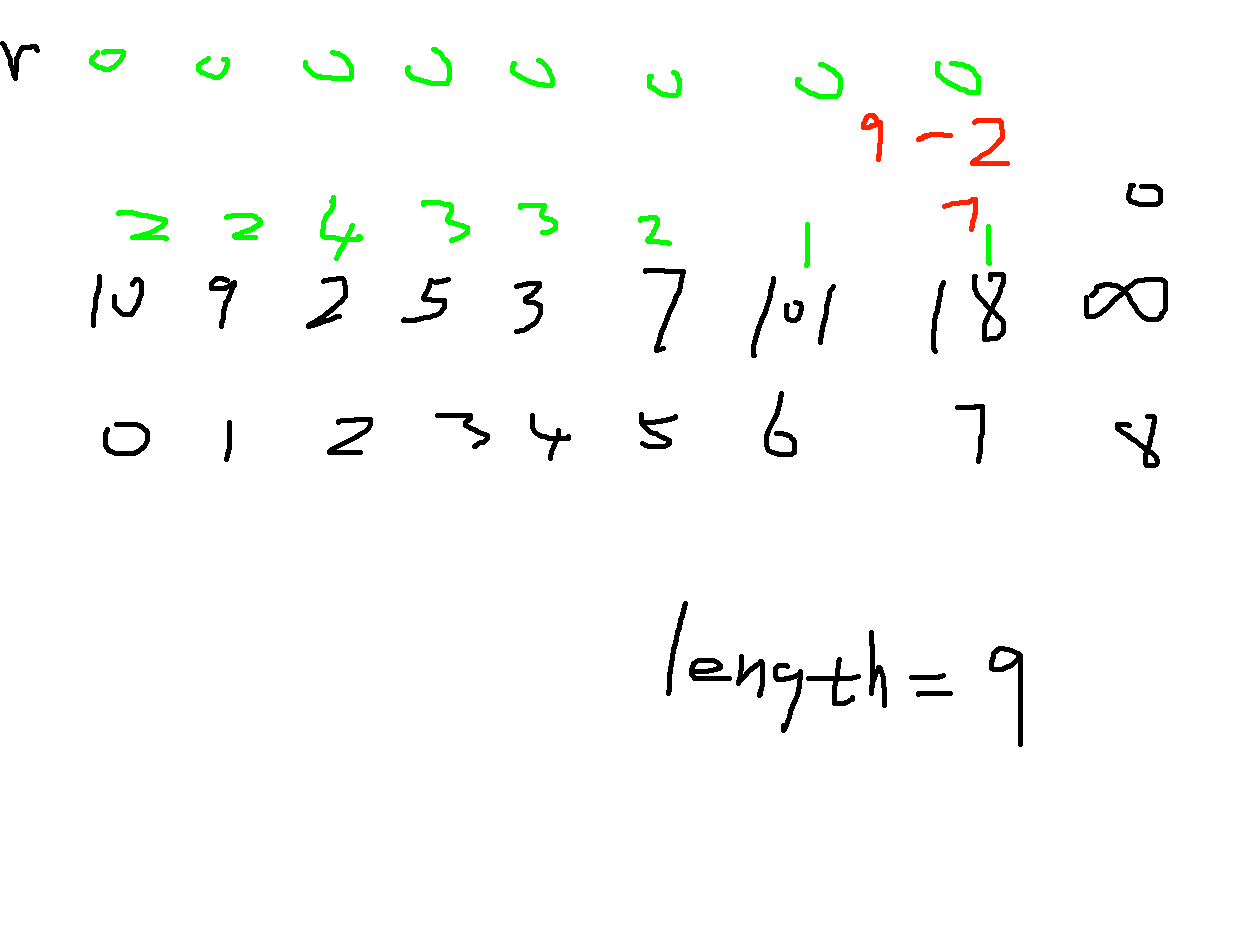 r 0 0 0 0 0 0 0 0
9 - 2
0
7
2 2 4 3 3 2 1 1
10 9 2 5 3 7 101 18 ∞
0 1 2 3 4 5 6 7 8
length = 9